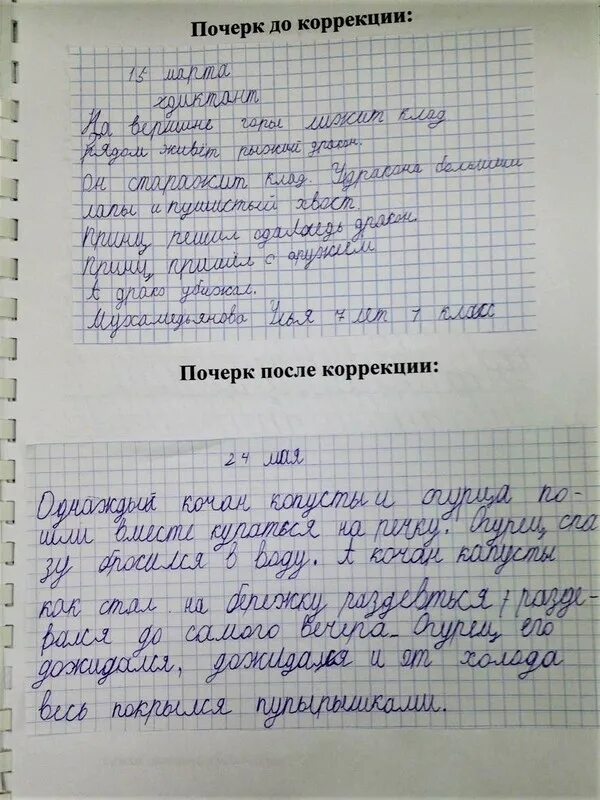 Почерк до коррекции:
15 марта
хдиктант
На вершине горы лижит клад
рядом живёт рыжий дракон.
Он стараожит клад. Удракона большиии
лапы и пушистый хвост
Принц решил сдалаледь дракон.
Принц пришёл с оружием
А драко убижал.
Мухамедьянова Илья 7 лет 1 класс
Почерк после коррекции:
24 мая
Однаждый кочан копусты и огурца по-
шли вместе купаться на речку. Огурец сра
зу бросился в воду. А кочан капусты
как стал на бережку раздевться, разде-
вался до самого вечера. Огурец его
дожидался, дожидался и от холода
весь покрылся пупырышками.